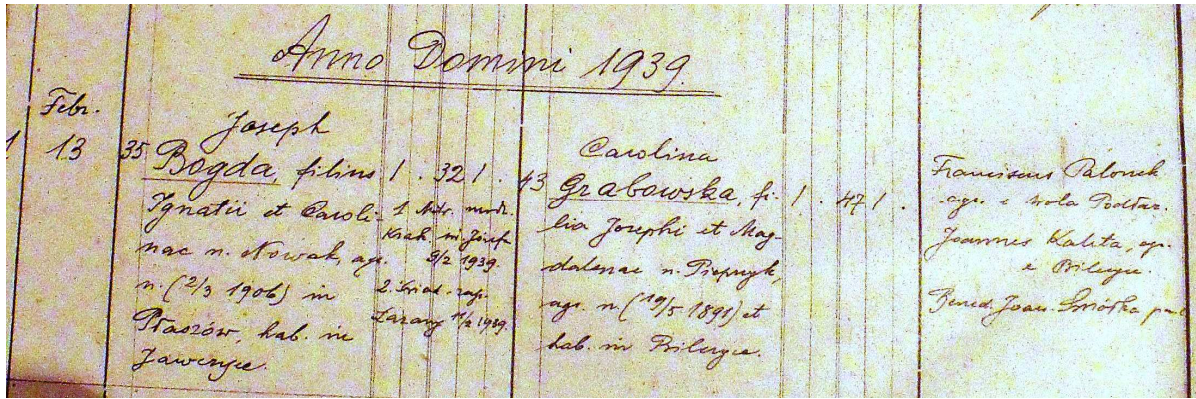 Anno Domini 1939.
Febr.
1 13 35
Joseph
Bogda, filius
Ignatii et Caroli-
nae n. Nowak, agr.
n. (2/3 1906) in
Płaszów, hab. in
Jawczyce.
1 . 32 1 .
1 Metr. urodz.
Krak. in Józef
3/2 1939.
2. Świad. zap.
Łazany 11/2 1939.
43
Carolina
Grabowska, fi-
lia Josephi et Mag-
dalenae n. Pieprzyk,
agr. n (19/5 1891) et
hab. in Bilczyce.
1 . 47 1 .
Franciscus Palonek
agr. e Wola Podłaz.
Joannes Kaleta, agr.
e Bilczyce.
Bened. Joan. Smółka